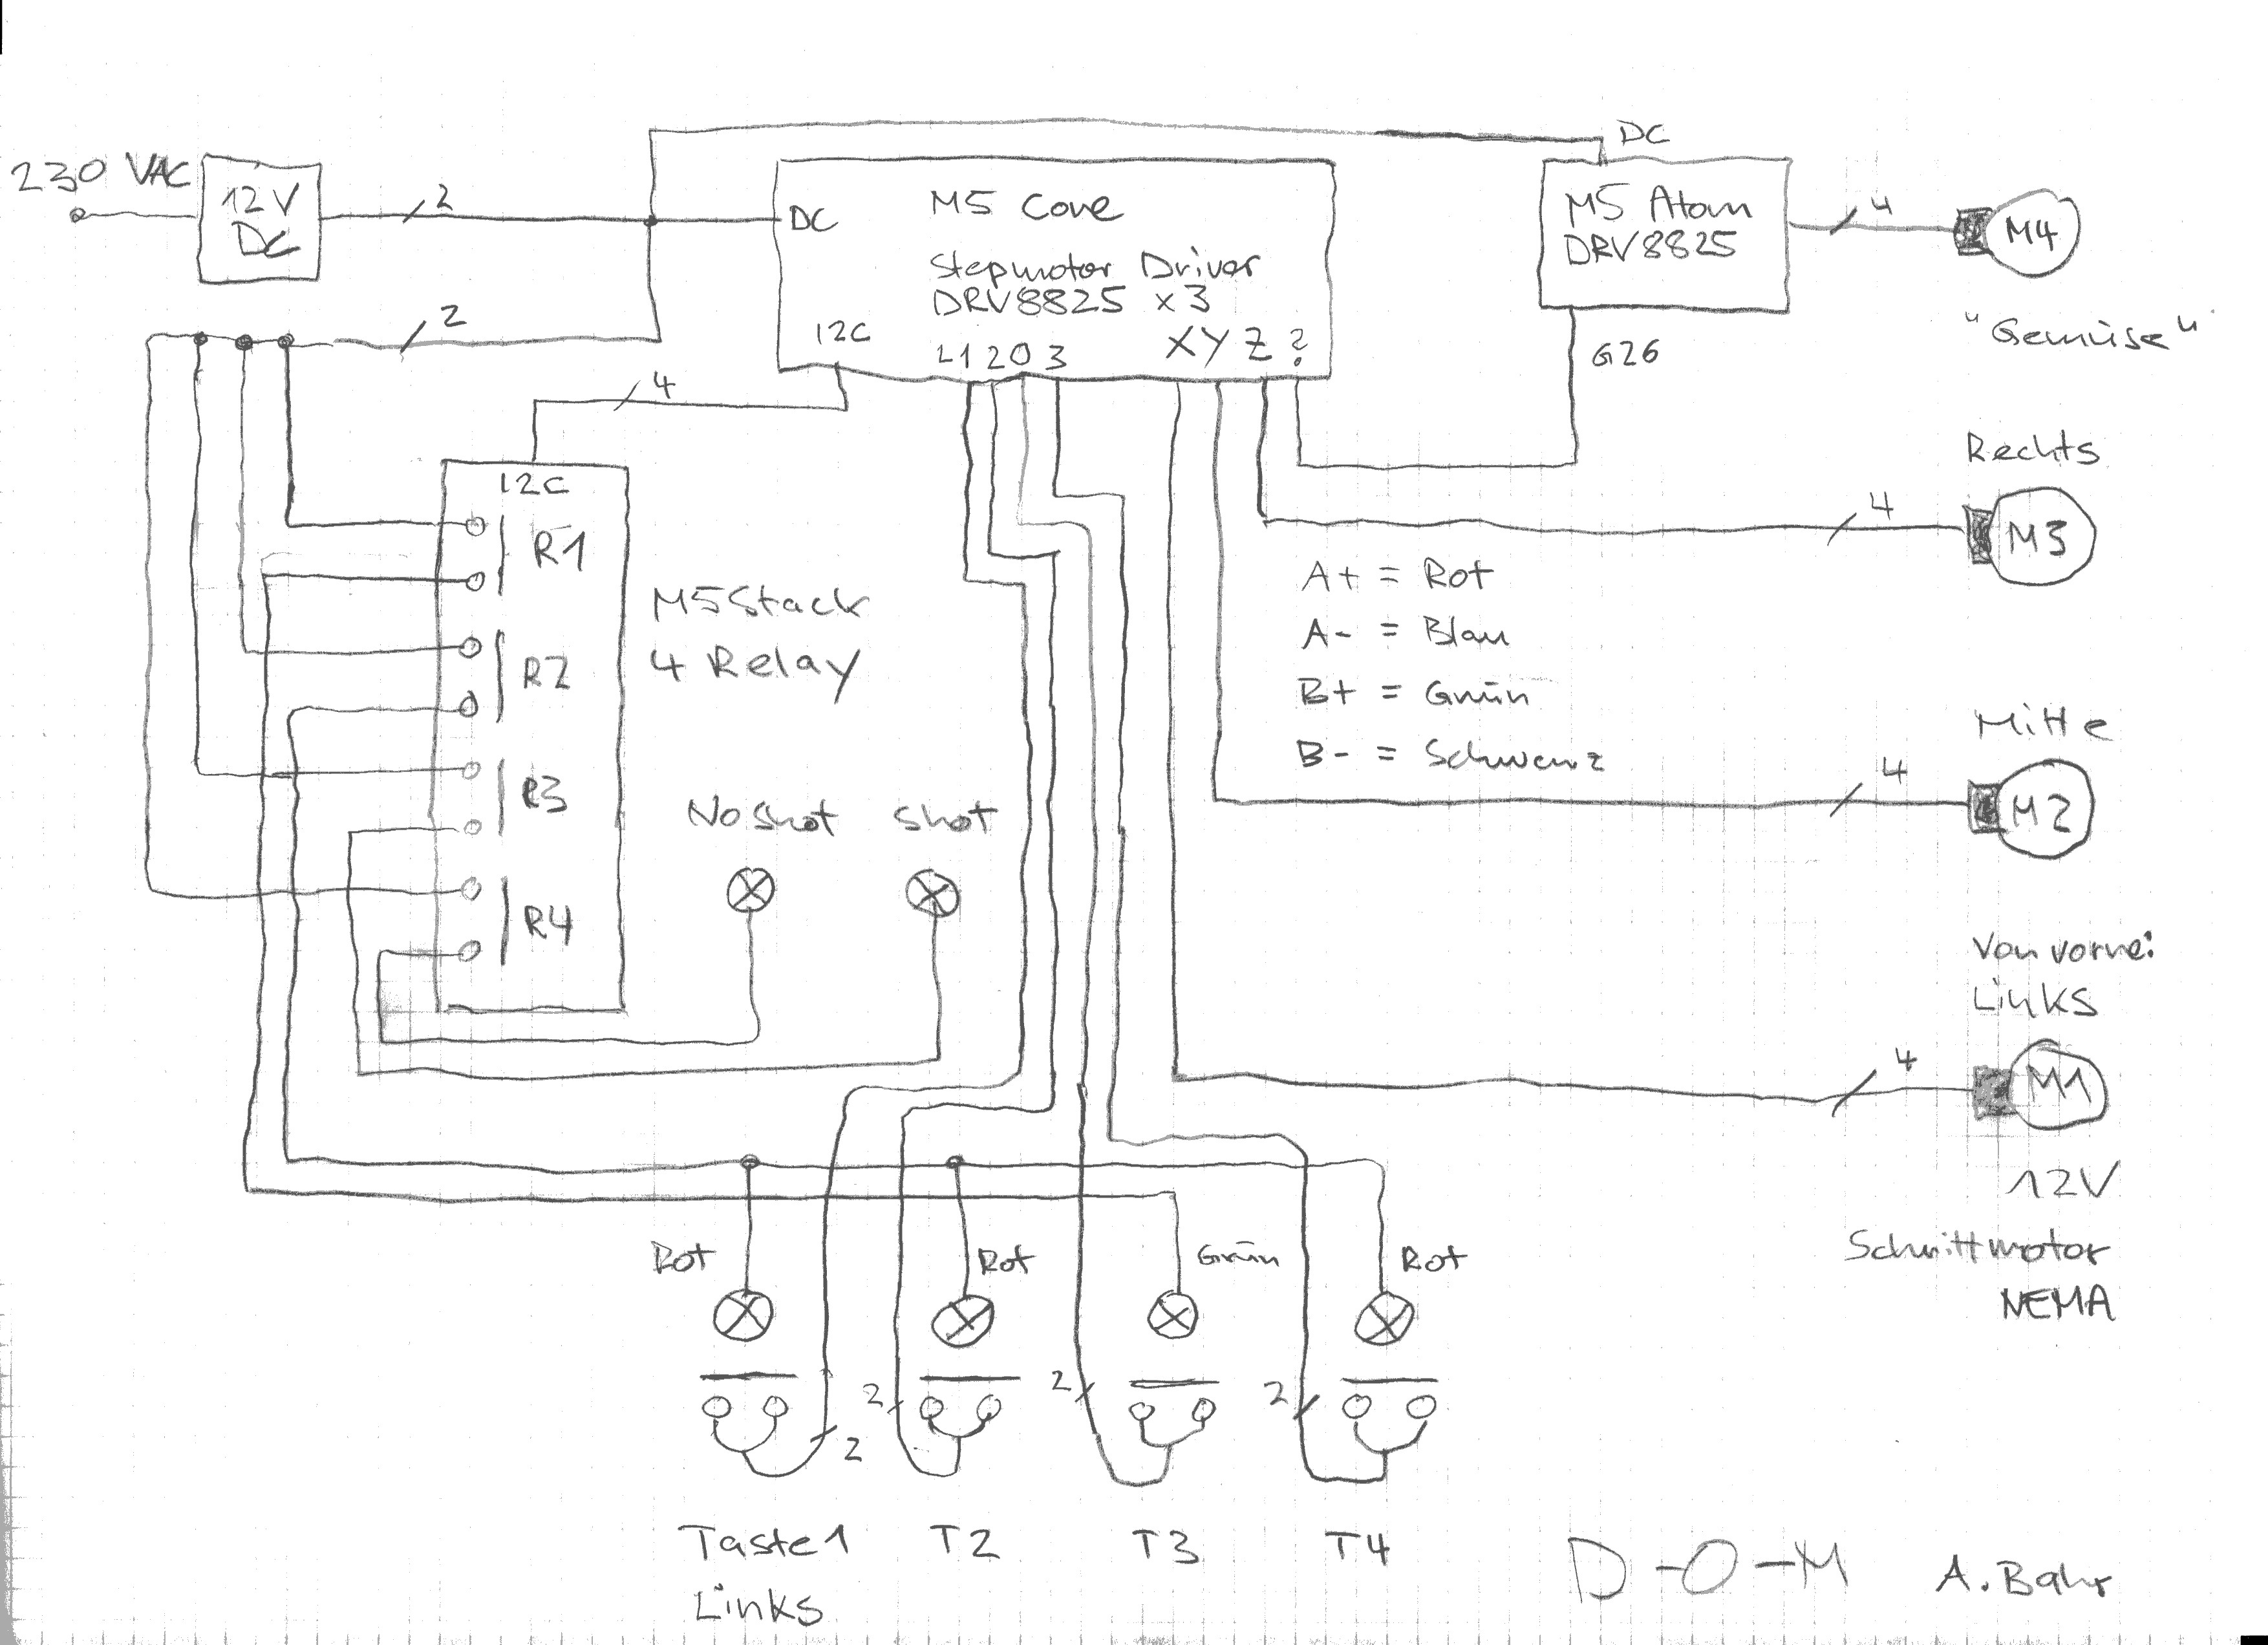 230 VAC
12V
DC
2
2
DC
M5 Core
Stepmotor Driver
DRV8825 x3
I2C
1 2 0 3
X Y Z ?
DC
M5 Atom
DRV8825
4
M4
"Gemüse"
G26
4
I2C
R1
R2
R3
R4
M5Stack
4 Relay
Rechts
4
M3
A+ = Rot
A- = Blau
B+ = Grün
B- = Schwarz
Mitte
4
M2
No Shot
Shot
Von vorne:
Links
4
M1
12V
Schrittmotor
NEMA
Rot
Rot
Grün
Rot
2
2
2
2
Taste1
Links
T2
T3
T4
D-O-M
A. Bahr